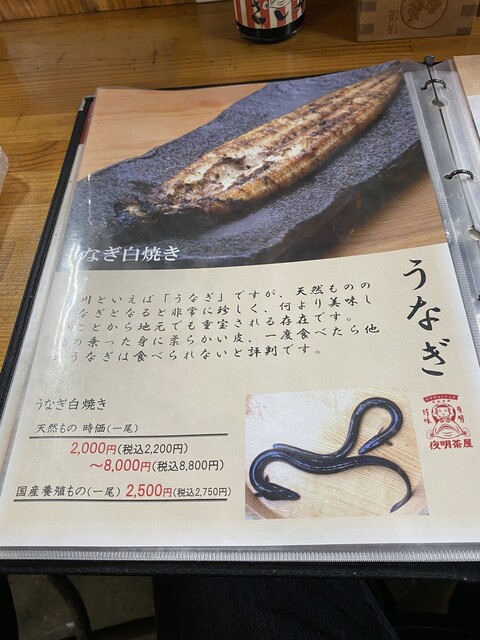 うなぎ白焼き
うなぎ
川といえば「うなぎ」ですが、天然ものの
なぎとなると非常に珍しく、何より美味し
いことから地元でも重宝される存在です。
の乗った身に柔らかい皮、一度食べたら他
うなぎは食べられないと評判です。
うなぎ白焼き
天然もの 時価(一尾)
2,000円(税込2,200円)
～8,000円(税込8,800円)
国産養殖もの(一尾) 2,500円(税込2,750円)
有明
珍味
夜明茶屋